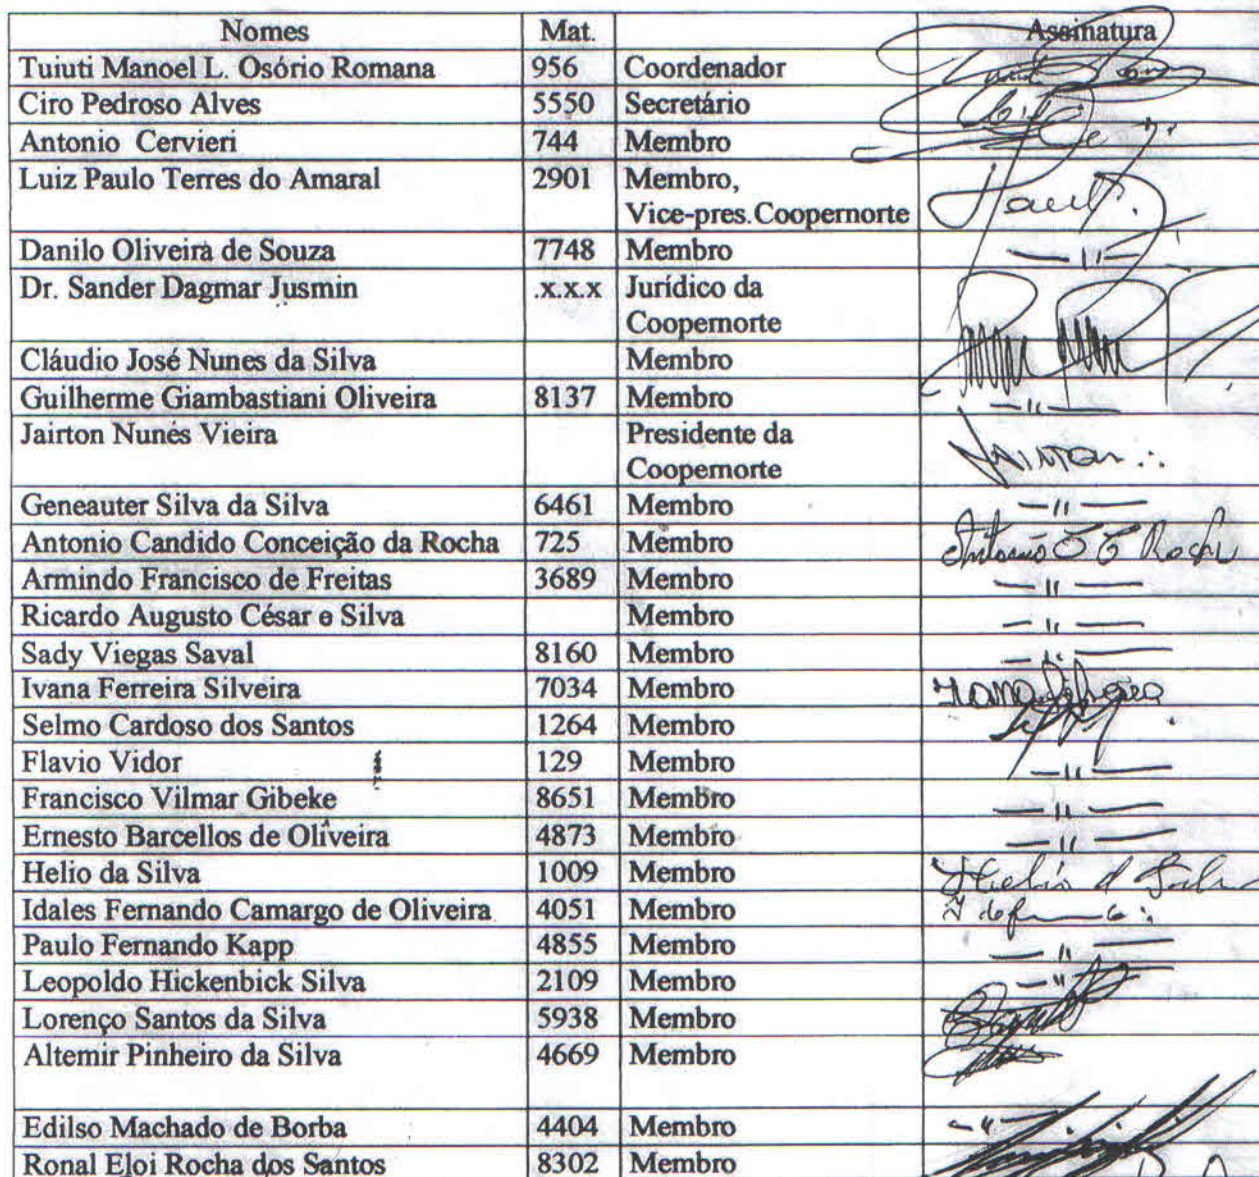 Nomes Mat. Assinatura
Tuiuti Manoel L. Osório Romana 956 Coordenador
Ciro Pedroso Alves 5550 Secretário
Antonio Cervieri 744 Membro
Luiz Paulo Terres do Amaral 2901 Membro,
Vice-pres.Coopernorte
Danilo Oliveira de Souza 7748 Membro — 11 —
Dr. Sander Dagmar Jusmin .x.x.x Jurídico da
Coopernorte
Cláudio José Nunes da Silva Membro
Guilherme Giambastiani Oliveira 8137 Membro — 11 —
Jairton Nunes Vieira Presidente da
Coopernorte
Geneauter Silva da Silva 6461 Membro — 11 —
Antonio Candido Conceição da Rocha 725 Membro Antonio C C Rocha
Armindo Francisco de Freitas 3689 Membro — 11 —
Ricardo Augusto César e Silva Membro — 11 —
Sady Viegas Saval 8160 Membro — 11 —
Ivana Ferreira Silveira 7034 Membro
Selmo Cardoso dos Santos 1264 Membro
Flavio Vidor 129 Membro — 11 —
Francisco Vilmar Gibeke 8651 Membro — 11 —
Ernesto Barcellos de Oliveira 4873 Membro — 11 —
Helio da Silva 1009 Membro Helio d Silva
Idales Fernando Camargo de Oliveira 4051 Membro
Paulo Fernando Kapp 4855 Membro — 11 —
Leopoldo Hickenbick Silva 2109 Membro — 11 —
Lorenço Santos da Silva 5938 Membro
Altemir Pinheiro da Silva 4669 Membro
Edilso Machado de Borba 4404 Membro — 11 —
Ronal Eloi Rocha dos Santos 8302 Membro